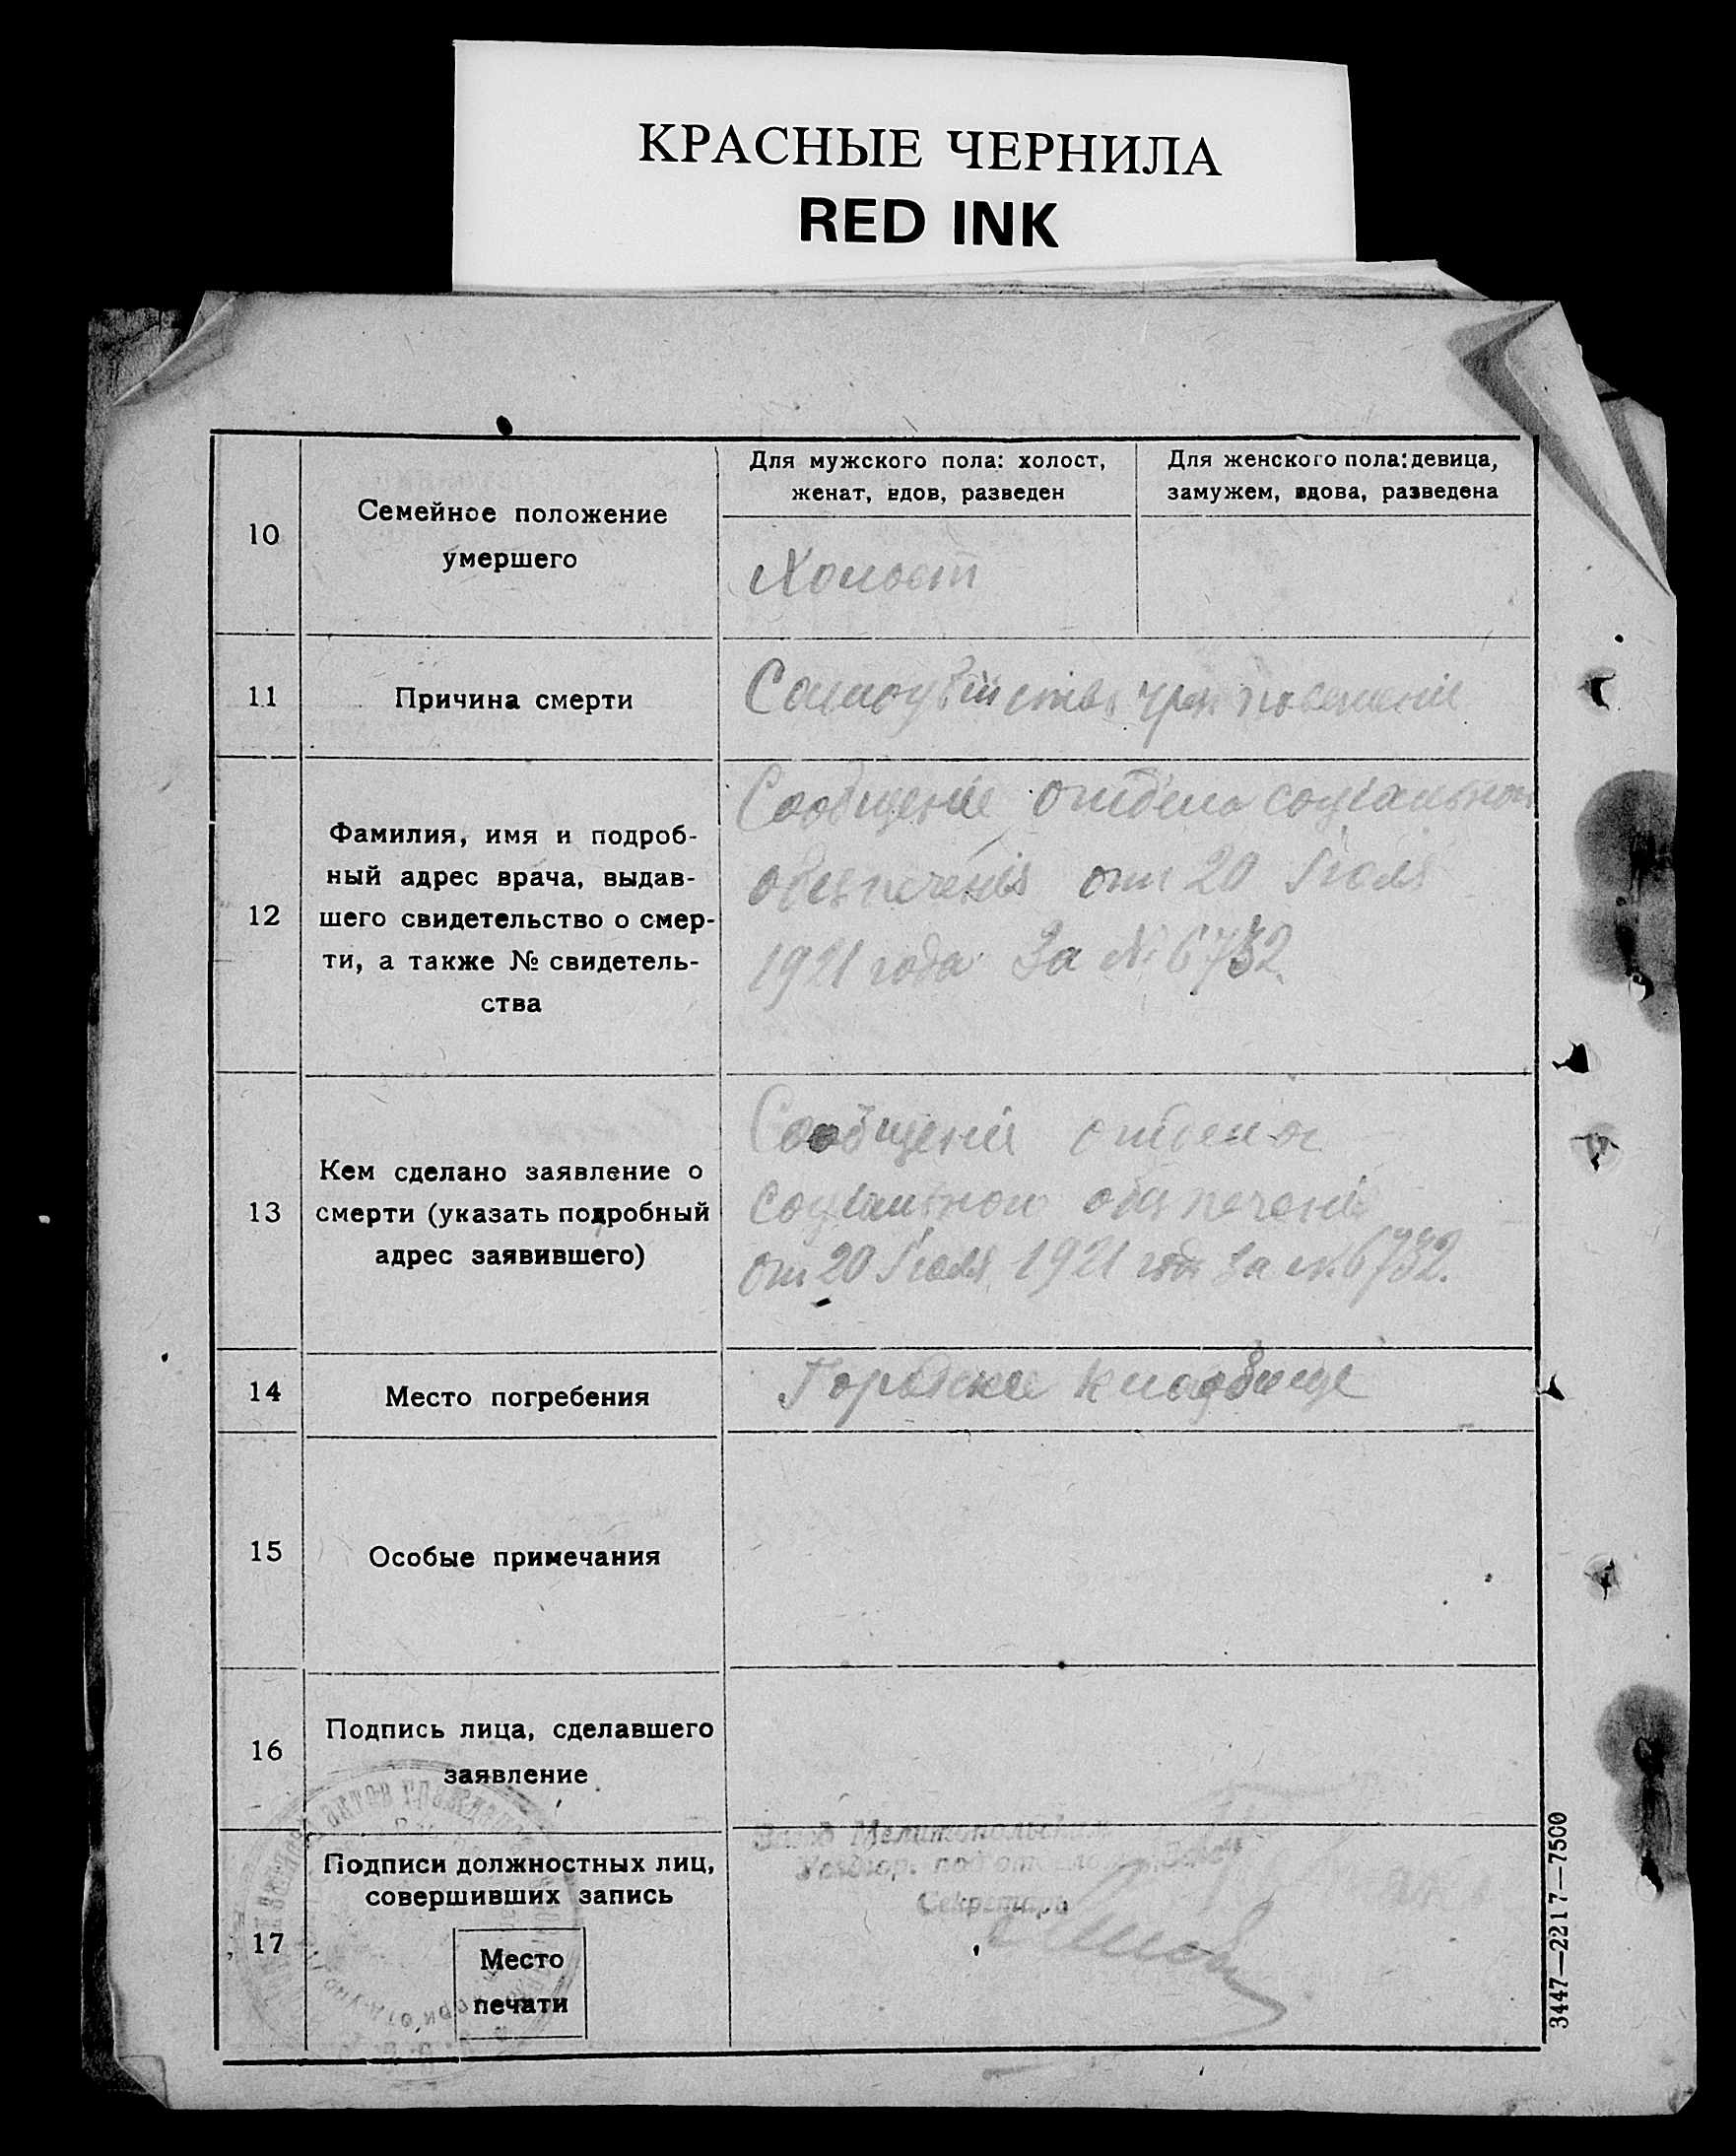 КРАСНЫЕ ЧЕРНИЛА
RED INK
10
Семейное положение
умершего
Для мужского пола: холост,
женат, вдов, разведен
Для женского пола: девица,
замужем, вдова, разведена
Холост
11
Причина смерти
Самоубийство чрез повешеніе
12
Фамилия, имя и подроб-
ный адрес врача, выдав-
шего свидетельство о смер-
ти, а также № свидетель-
ства
Сообщеніе отдела соціальнои
обезпеченія от 20 Іюля
1921 года за № 6732.
13
Кем сделано заявление о
смерти (указать подробный
адрес заявившего)
Сообщеніе отдела
соціальнои обезпеченіе
от 20 Іюля 1921 года за № 6732.
14
Место погребения
Городское кладбище
15
Особые примечания
16
Подпись лица, сделавшего
заявление
17
Подписи должностных лиц,
совершивших запись
Место
печати
Мелитопольским
Секретарь
3447—2217—7500